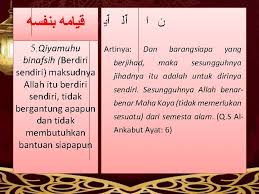 قيامه بنفسه
5.Qiyamuhu
binafsih (Berdiri
sendiri) maksudnya
Allah itu berdiri
sendiri, tidak
bergantung apapun
dan tidak
membutuhkan
bantuan siapapun
Artinya: Dan barangsiapa yang
berjihad, maka sesungguhnya
jihadnya itu adalah untuk dirinya
sendiri. Sesungguhnya Allah benar-
benar Maha Kaya (tidak memerlukan
sesuatu) dari semesta alam. (Q.S Al-
Ankabut Ayat: 6)